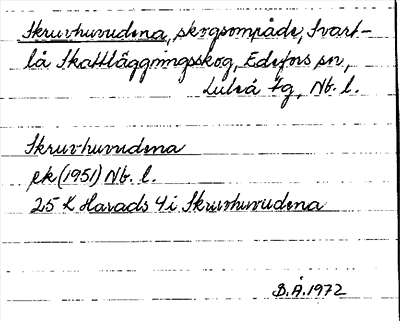 Skruvhuvudena, skogsområde, Svart-
lå Skattläggningsskog, Edefors sn,
Luleå tg, Nb. l.
Skruvhuvudena
ek (1951) Nb. l.
25 K Harads 4i Skruvhuvudena
B.Å.1972